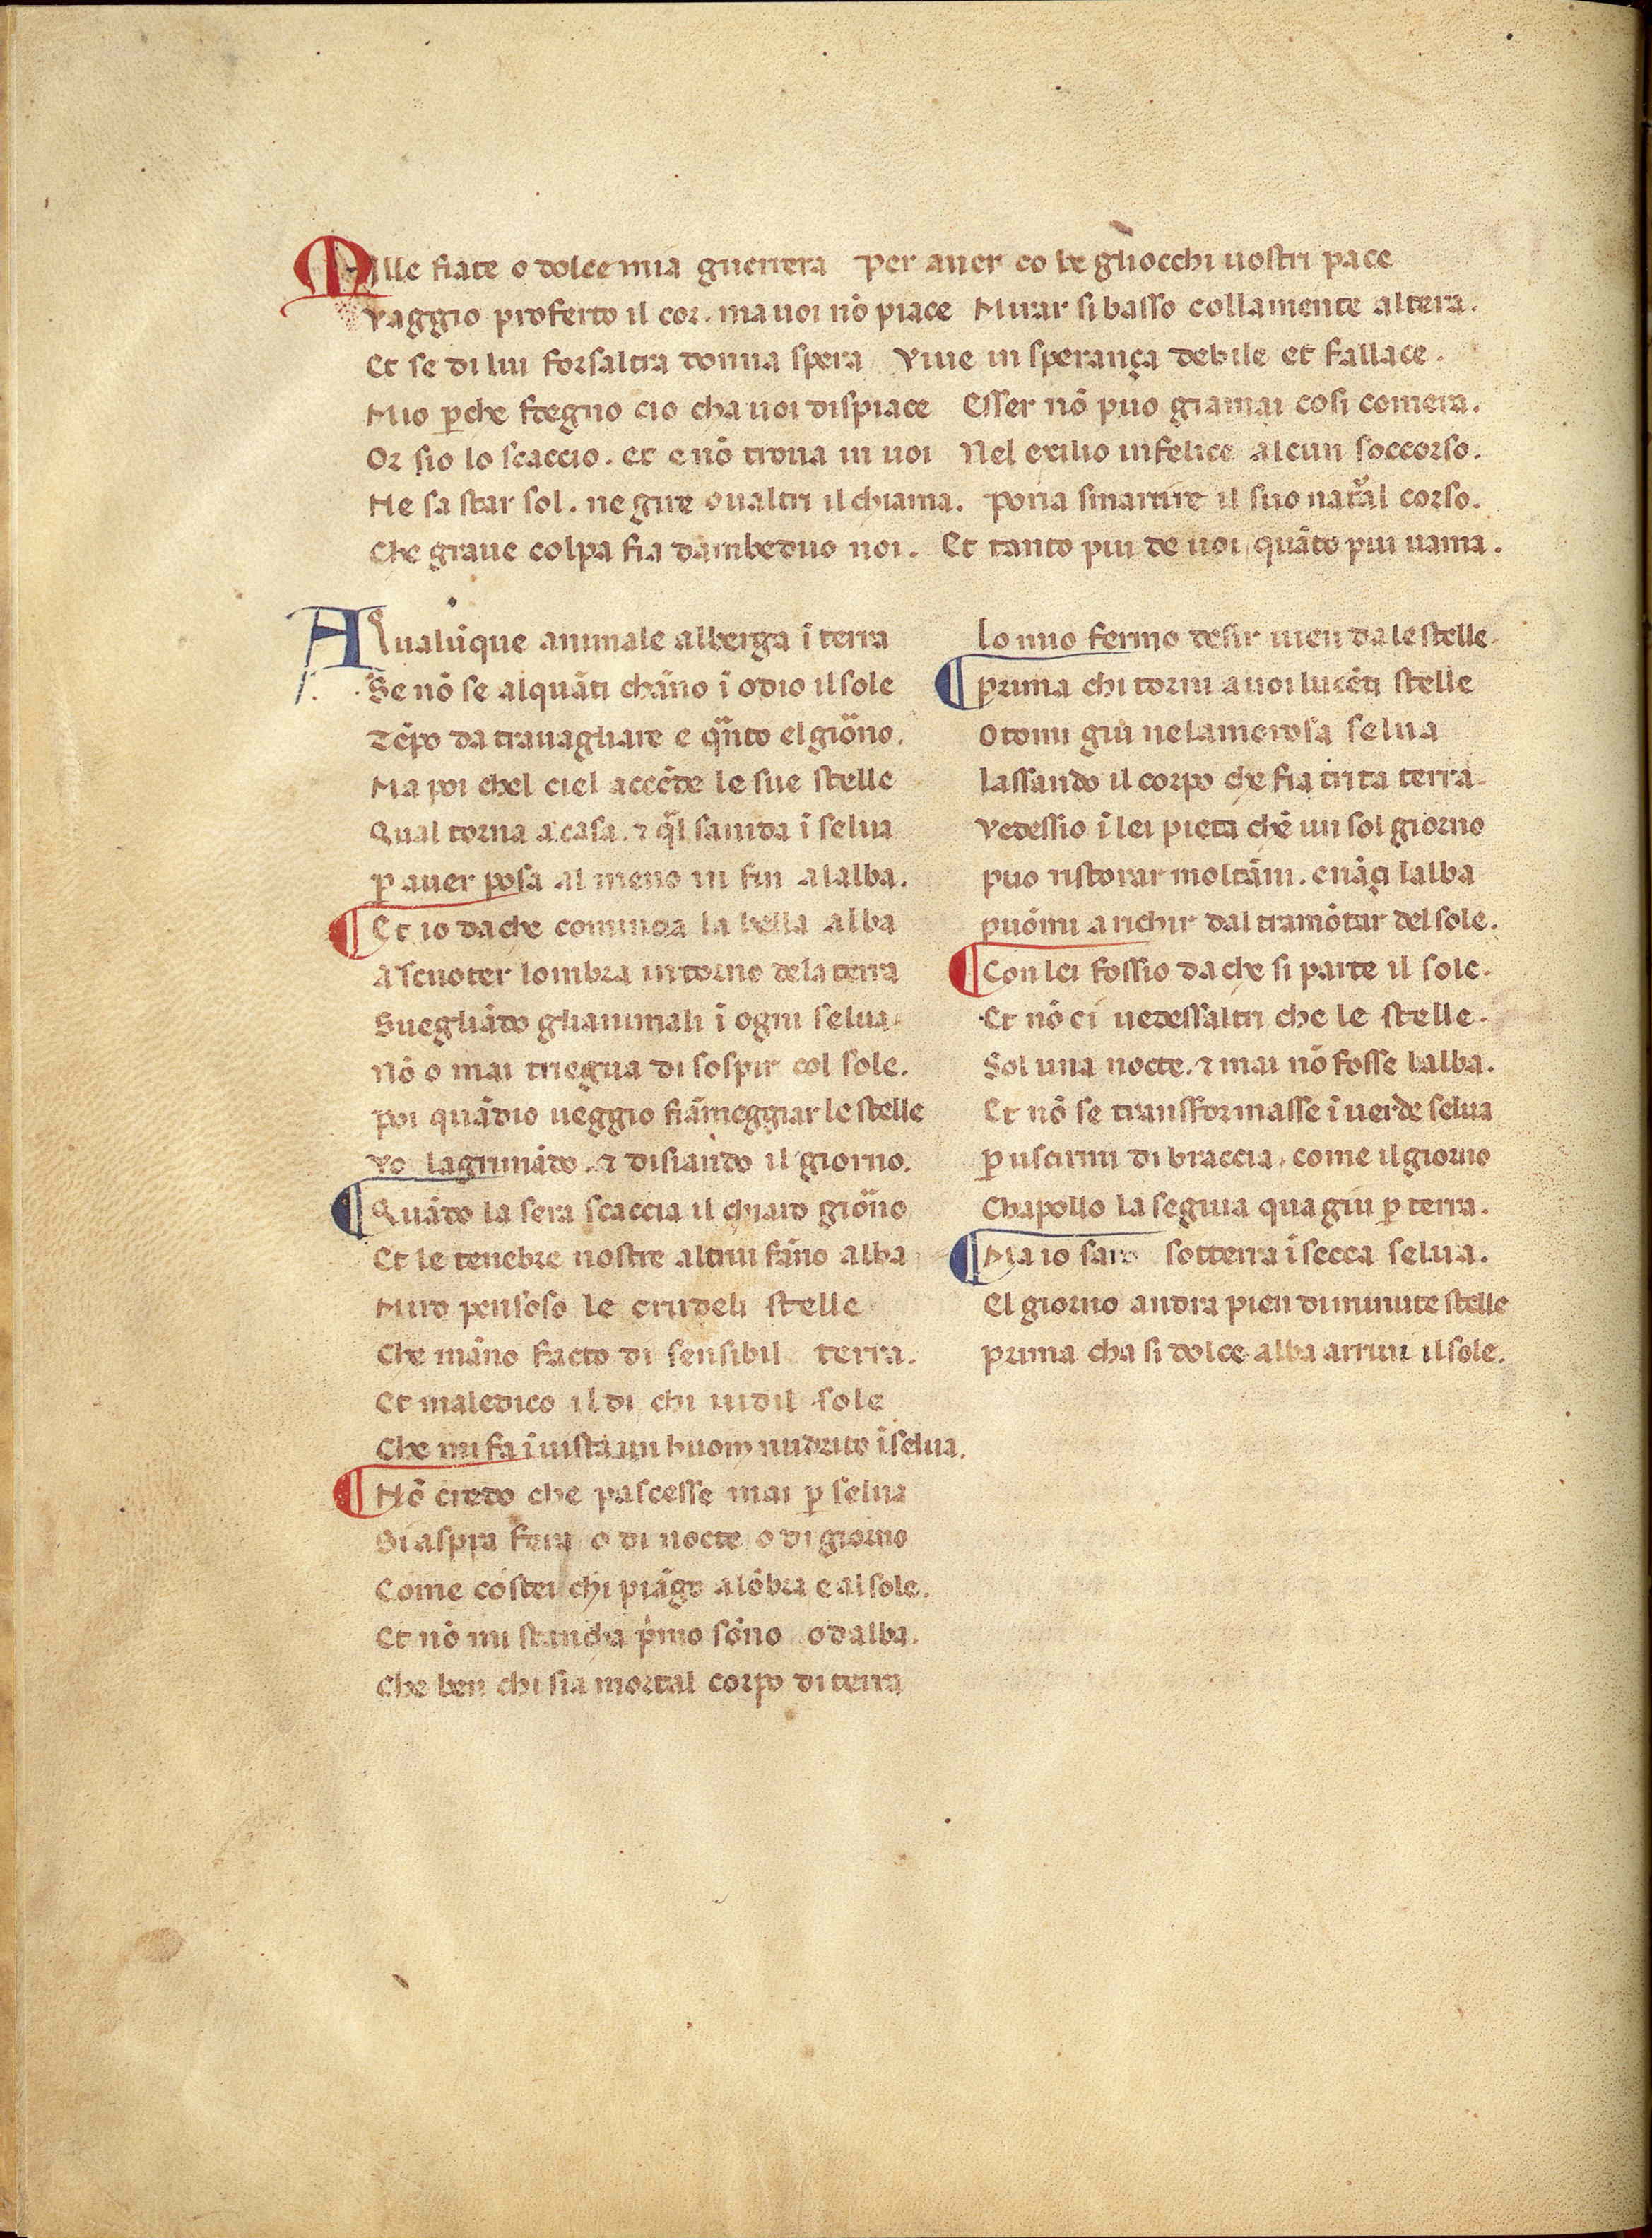 Mille fiate o dolce mia guerrera per auer co be gliocchi uostri pace
Vaggio proferto il cor. ma uoi nō piace Mirar si basso colla mente altera.
Et se di lui forsaltra donna spera Viue in sperança debile et fallace.
Mio ꝑche sdegno cio cha uoi dispiace Esser nō puo giamai cosi comera.
Or sio lo scaccio. et e nō troua in uoi Nel exilio infelice alcun soccorso.
Ne sa star sol. ne gire oualtri il chiama. poria smarrire il suo natͣal corso.
Che graue colpa fia dambeduo noi. Et tanto piu de uoi quāto piu uama.
A Qualūque animale alberga ī terra
Se nō se alquāti chāno ī odio il sole
Tēpo da trauagliare e qͣnto el gioͫno.
Ma poi chel ciel accēde le sue stelle
Qual torna a casa. ⁊ qͣl sanida ī selua
ꝑ auer posa al meno in fin alalba.
Et io da che comincia la bella alba
A scuoter lombra intorno de la terra
Suegliādo glianimali ī ogni selua.
nō o mai triegua di sospir col sole.
poi quādio ueggio fiāmeggiar le stelle
Vo lagrimādo. ⁊ disiando il giorno.
Quādo la sera scaccia il chiaro gioͫno
Et le tenebre nostre altrui fāno alba
Miro pensoso le crudeli stelle
Che māno facto di sensibil terra.
Et maledico il di chi uidil sole
Che mi fa ī uista un huom nudrito ī selua.
Nō credo che pascesse mai ꝑ selua
Si aspra fera o di nocte o di giorno
Come costei chi piāgo alōbra e al sole.
Et nō mi stancha pͥmo sōno od alba.
Che ben chi sia mortal corpo di terra
lo mio fermo desir uien da le stelle.
prima chi torni a uoi lucēti stelle
O tomi giu nelamorosa selua
lassando il corpo che fia trita terra.
Vedessio ī lei pieta chē un sol giorno
puo ristorar moltāni. enāçi lalba
puōmi arichir dal tramōtar del sole.
Con lei fossio da che si parte il sole.
Et nō ci uedessaltri che le stelle.
Sol una nocte. ⁊ mai nō fosse lalba.
Et nō se transformasse ī uerde selua
ꝑ uscirmi di braccia. come il giorno
Chapollo la seguia qua giu ꝑ terra.
Ma io saro sotterra ī secca selua.
El giorno andra pien di minute stelle
prima cha si dolce alba arriui il sole.